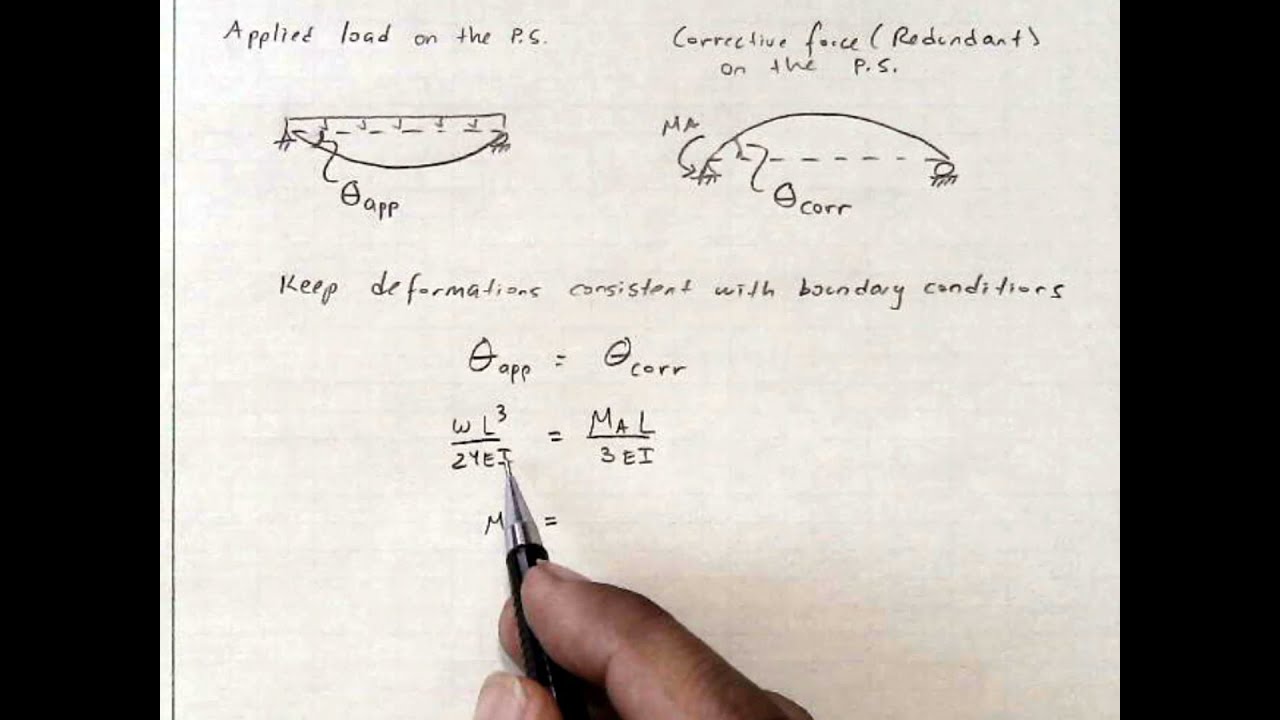 Applied load on the P.S.
Corrective force (Redundant)
on the P.S.
MA
θapp
θcorr
Keep deformations consistent with boundary conditions
θapp = θcorr
wL³/24EI = MAL/3EI
M =